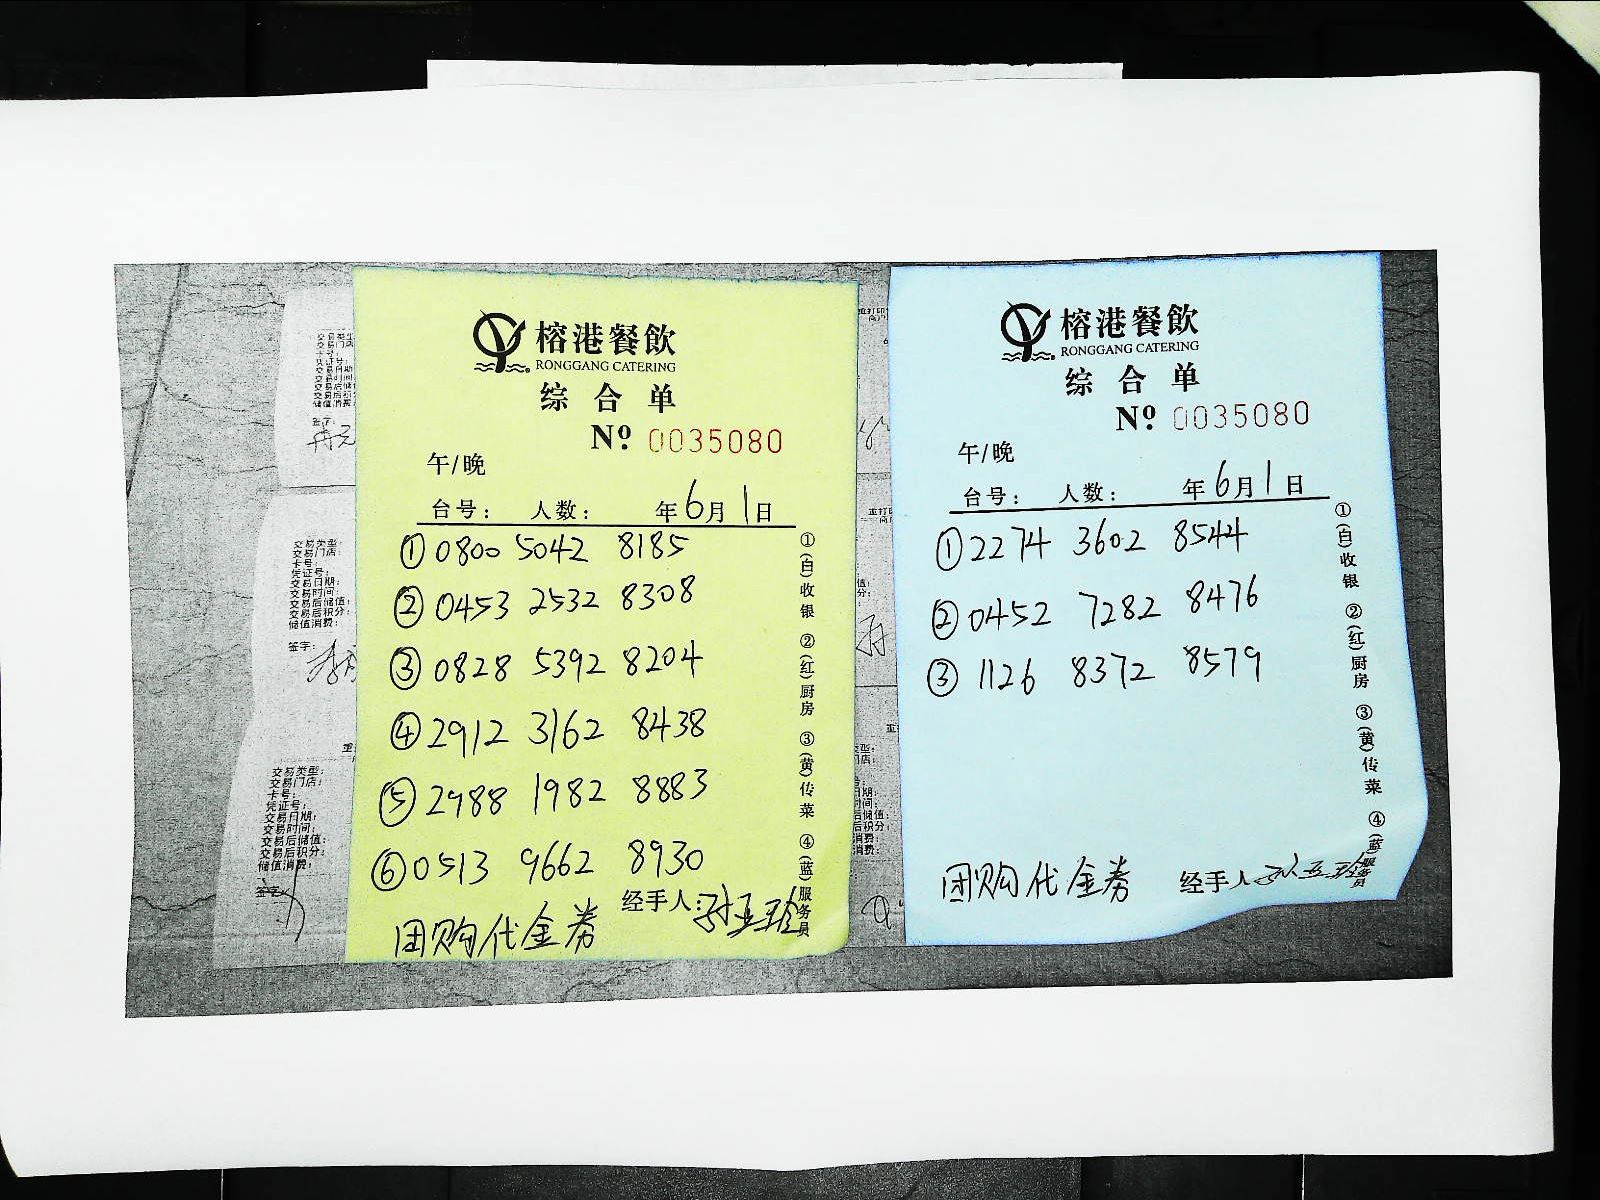 榕港餐飲
RONGGANG CATERING
综合单
Nº 0035080
午/晚
台号： 人数： 年6月1日
①0800 5042 8185
②0453 2532 8308
③0828 5392 8204
④2912 3162 8438
⑤2988 1982 8883
⑥0513 9662 8930
经手人：孙亚玲
团购代金券
①(白)收银 ②(红)厨房 ③(黄)传菜 ④(蓝)服务员
榕港餐飲
RONGGANG CATERING
综合单
Nº 0035080
午/晚
台号： 人数： 年6月1日
①2274 3602 8544
②0452 7282 8476
③1126 8372 8579
团购代金券 经手人
①(白)收银 ②(红)厨房 ③(黄)传菜 ④(蓝)服务员
交易类型：
交易门店：
卡号：
凭证号：
交易日期：
交易时间：
交易后储值：
交易后积分：
储值消费：
签字：
交易类型：
交易门店：
卡号：
凭证号：
交易日期：
交易时间：
交易后储值：
交易后积分：
储值消费：
签字：